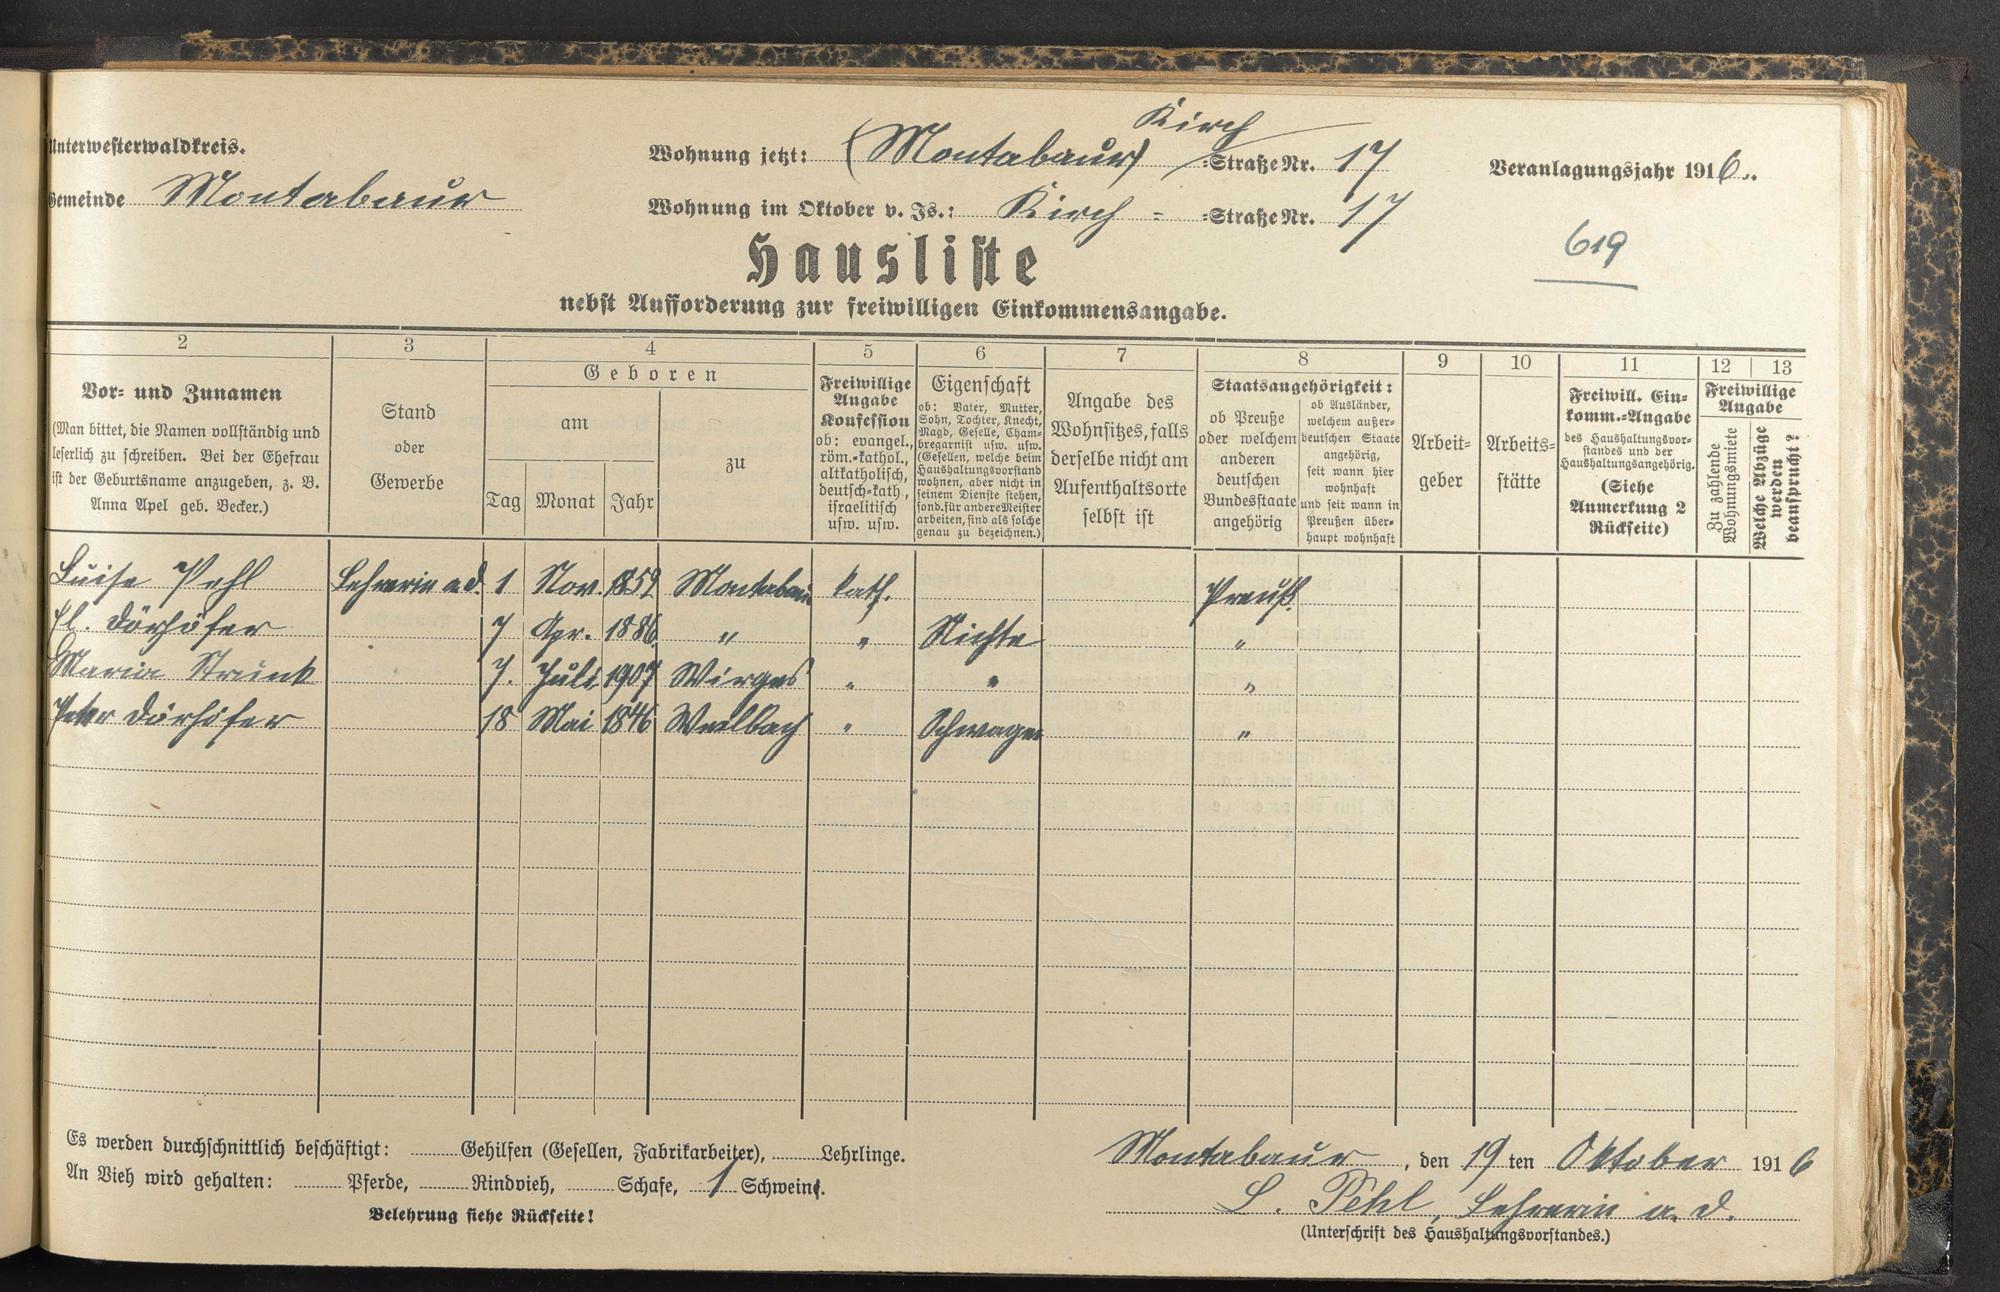 Unterwesterwaldkreis.
Gemeinde Montabaur
Wohnung jetzt: (Montabaur) Kirch =Straße Nr. 17
Wohnung im Oktober v. Js.: Kirch - =Straße Nr. 17
Veranlagungsjahr 1916.
619
Hausliste
nebst Aufforderung zur freiwilligen Einkommensangabe.
2
Vor= und Zunamen
(Man bittet, die Namen vollständig und
leserlich zu schreiben. Bei der Ehefrau
ist der Geburtsname anzugeben, z. B.
Anna Apel geb. Becker.)
3
Stand
oder
Gewerbe
4
Geboren
am
Tag Monat Jahr
zu
5
Freiwillige
Angabe
Konfession
ob: evangel.,
röm.=kathol.,
altkatholisch,
deutsch=kath.,
israelitisch
usw. usw.
6
Eigenschaft
ob: Vater, Mutter,
Sohn, Tochter, Knecht,
Magd, Geselle, Cham=
bregarnist usw. usw.
(Gesellen, welche beim
Haushaltungsvorstand
wohnen, aber nicht in
seinem Dienste stehen,
sond. für andere Meister
arbeiten, sind als solche
genau zu bezeichnen.)
7
Angabe des
Wohnsitzes, falls
derselbe nicht am
Aufenthaltsorte
selbst ist
8
Staatsangehörigkeit:
ob Preuße
oder welchem
anderen
deutschen
Bundesstaate
angehörig
ob Ausländer,
welchem außer=
deutschen Staate
angehörig,
seit wann hier
wohnhaft
und seit wann in
Preußen über=
haupt wohnhaft
9
Arbeit=
geber
10
Arbeits=
stätte
11
Freiwill. Ein=
komm.=Angabe
des Haushaltungsvor=
standes und der
Haushaltungsangehörig.
(Siehe
Anmerkung 2
Rückseite)
12 13
Freiwillige
Angabe
Zu zahlende
Wohnungsmiete
Welche Abzüge
werden
beansprucht?
Luise Pehl Lehrerin a.d. 1 Nov. 1859 Montabaur kath. Preuß.
El. Dörhöfer 7 Apr. 1886 " " Nichte "
Maria Strunk 7. Juli 1907 Wirges " " "
Peter Dörhöfer 18 Mai 1846 Weilbach " Schwager "
Es werden durchschnittlich beschäftigt: Gehilfen (Gesellen, Fabrikarbeiter), Lehrlinge.
An Vieh wird gehalten: Pferde, Rindvieh, Schafe, 1 Schweine.
Belehrung siehe Rückseite!
Montabaur, den 19ten Oktober 1916
L. Pehl, Lehrerin a. D.
(Unterschrift des Haushaltungsvorstandes.)